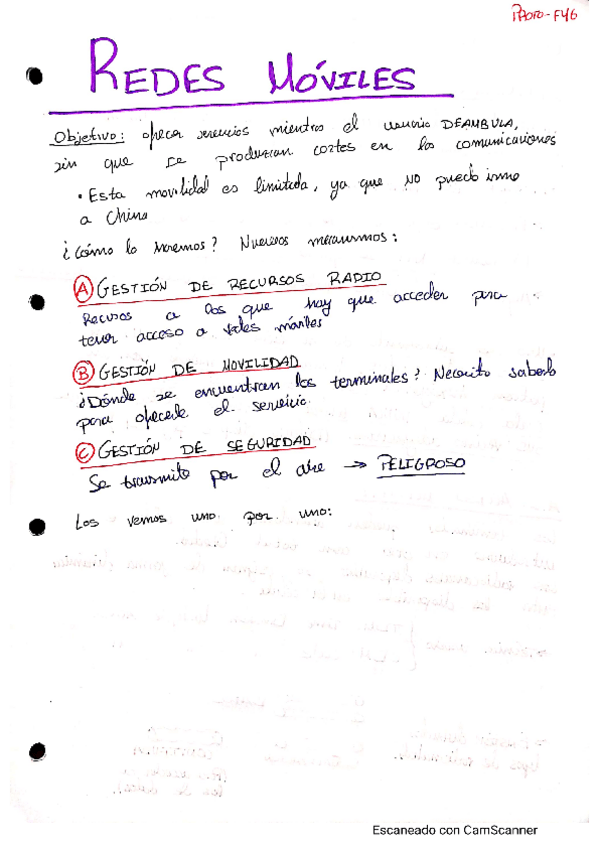 PROPO-F46
REDES MÓVILES
Objetivo: ofrecer servicios mientras el usuario DEAMBULA,
sin que se produzcan cortes en las comunicaciones
• Esta movilidad es limitada, ya que NO puedo irme
a China
¿Cómo lo haremos? Nuevos mecanismos:
A GESTIÓN DE RECURSOS RADIO
Recursos a los que hay que acceder para
tener acceso a redes móviles
B GESTIÓN DE MOVILIDAD
¿Dónde se encuentran los terminales? Necesito saberlo
para ofrecerle el servicio.
C GESTIÓN DE SEGURIDAD
Se transmite por el aire → PELIGROSO
Los vemos uno por uno:
Escaneado con CamScanner